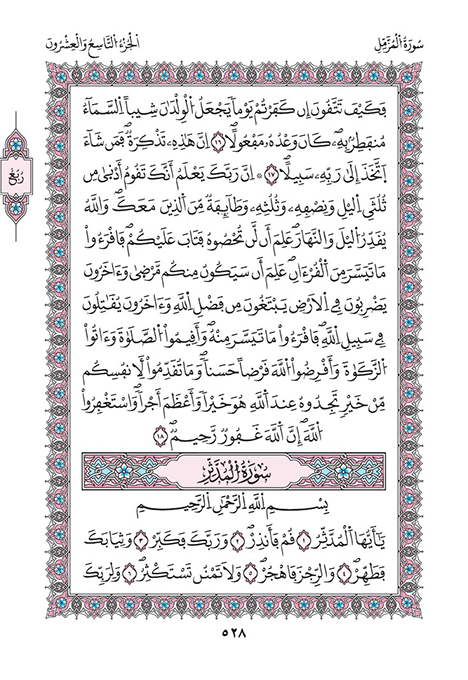 سُورَةُ الْمُزَّمِّلِ
الْجُزْءُ التَّاسِعُ وَالْعِشْرُونَ
رُبُعٌ
فَكَيْفَ تَتَّقُونَ إِن كَفَرْتُمْ يَوْماً يَجْعَلُ الْوِلْدَٰنَ شِيباً السَّمَآءُ
مُنفَطِرٌ بِهِۦ كَانَ وَعْدُهُۥ مَفْعُولاً ١٦ إِنَّ هَٰذِهِۦ تَذْكِرَةٌ فَمَن شَآءَ
اَتَّخَذَ إِلَىٰ رَبِّهِۦ سَبِيلاً ١٧ ۞ إِنَّ رَبَّكَ يَعْلَمُ أَنَّكَ تَقُومُ أَدْنَىٰ مِن
ثُلُثَيِ اِلَّيْلِ وَنِصْفِهِۦ وَثُلُثِهِۦ وَطَآئِفَةٌ مِّنَ اَلَّذِينَ مَعَكَ وَاللَّهُ
يُقَدِّرُ اُلَّيْلَ وَالنَّهَارَ عَلِمَ أَن لَّن تُحْصُوهُ فَتَابَ عَلَيْكُمْ فَاقْرَءُواْ
مَا تَيَسَّرَ مِنَ اَلْقُرْءَانِ عَلِمَ أَن سَيَكُونُ مِنكُم مَّرْضَىٰ وَءَاخَرُونَ
يَضْرِبُونَ فِي اِلْأَرْضِ يَبْتَغُونَ مِن فَضْلِ اِللَّهِ وَءَاخَرُونَ يُقَٰتِلُونَ
فِي سَبِيلِ اِللَّهِ فَاقْرَءُواْ مَا تَيَسَّرَ مِنْهُ وَأَقِيمُواْ اُلصَّلَوٰةَ وَءَاتُواْ
اُلزَّكَوٰةَ وَأَقْرِضُواْ اُللَّهَ قَرْضاً حَسَناً وَمَا تُقَدِّمُواْ لِأَنفُسِكُم
مِّنْ خَيْرٍ تَجِدُوهُ عِندَ اَللَّهِ هُوَ خَيْراً وَأَعْظَمَ أَجْراً وَاسْتَغْفِرُواْ
اُللَّهَ إِنَّ اَللَّهَ غَفُورٌ رَّحِيمٌ ١٨
سُورَةُ الْمُدَّثِّرِ
بِسْمِ اِللَّهِ اِلرَّحْمَٰنِ اِلرَّحِيمِ
يَٰٓأَيُّهَا اَلْمُدَّثِّرُ ١ قُمْ فَأَنذِرْ ٢ وَرَبَّكَ فَكَبِّرْ ٣ وَثِيَابَكَ
فَطَهِّرْ ٤ وَالرِّجْزَ فَاهْجُرْ ٥ وَلَا تَمْنُن تَسْتَكْثِرُ ٦ وَلِرَبِّكَ
٥٢٨